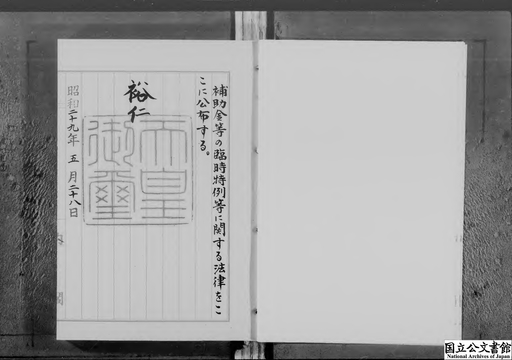 補助金等の臨時特例等に関する法律をこ
こに公布する。
裕仁
天皇御璽
昭和二十九年五月二十八日
国立公文書館
National Archives of Japan